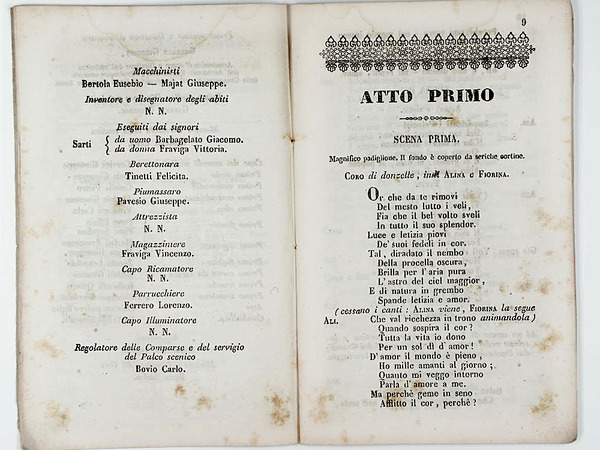 Macchinisti
Bertola Eusebio — Majat Giuseppe.
Inventore e disegnatore degli abiti
N. N.
Eseguiti dai signori
Sarti { da uomo Barbagelato Giacomo.
da donna Fraviga Vittoria.
Berettonara
Tinetti Felicita.
Piumassaro
Pavesio Giuseppe.
Attrezzista
N. N.
Magazziniere
Fraviga Vincenzo.
Capo Ricamatore
N. N.
Parrucchiere
Ferrero Lorenzo.
Capo Illuminatore
N. N.
Regolatore delle Comparse e del servigio
del Palco scenico
Bovio Carlo.
9
ATTO PRIMO
SCENA PRIMA.
Magnifico padiglione. Il fondo è coperto da seriche cortine.
Coro di donzelle, indi Alina e Fiorina.
Or che da te rimovi
Del mesto lutto i veli,
Fia che il bel volto sveli
In tutto il suo splendor.
Luce e letizia piovi
De' suoi fedeli in cor.
Tal, diradato il nembo
Della procella oscura,
Brilla per l'aria pura
L'astro del ciel maggior,
E di natura in grembo
Spande letizia e amor.
(cessano i canti: Alina viene, Fiorina la segue
Ali. Che val richezza in trono animandola)
Quando sospira il cor?
Tutta la vita io dono
Per un sol dì d'amor!
D'amor il mondo è pieno,
Ho mille amanti al giorno;
Quanto mi veggo intorno
Parla d'amore a me.
Ma perchè geme in seno
Afflitto il cor, perchè?